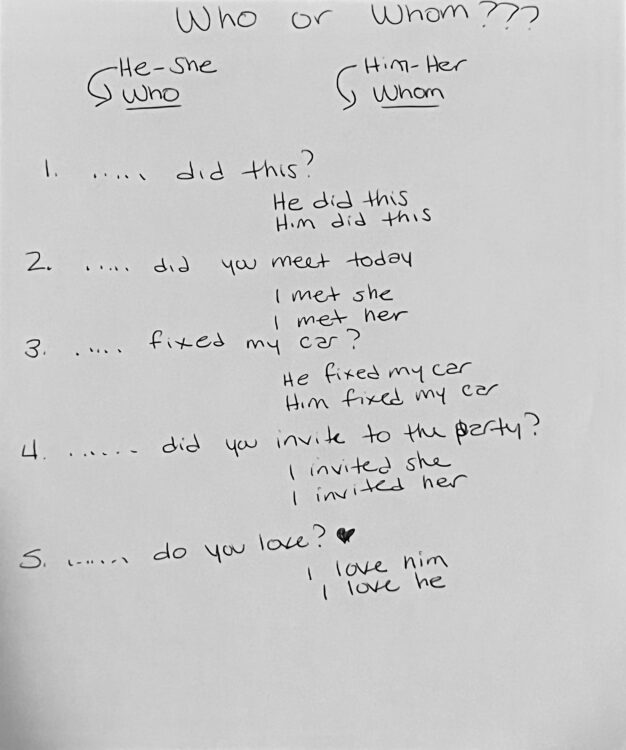 Who or Whom???
He-She Him-Her
Who Whom
1. ..... did this?
He did this
Him did this
2. ..... did you meet today
I met she
I met her
3. ..... fixed my car?
He fixed my car
Him fixed my car
4. ...... did you invite to the party?
I invited she
I invited her
5. ....... do you love? ♥
I love him
I love he